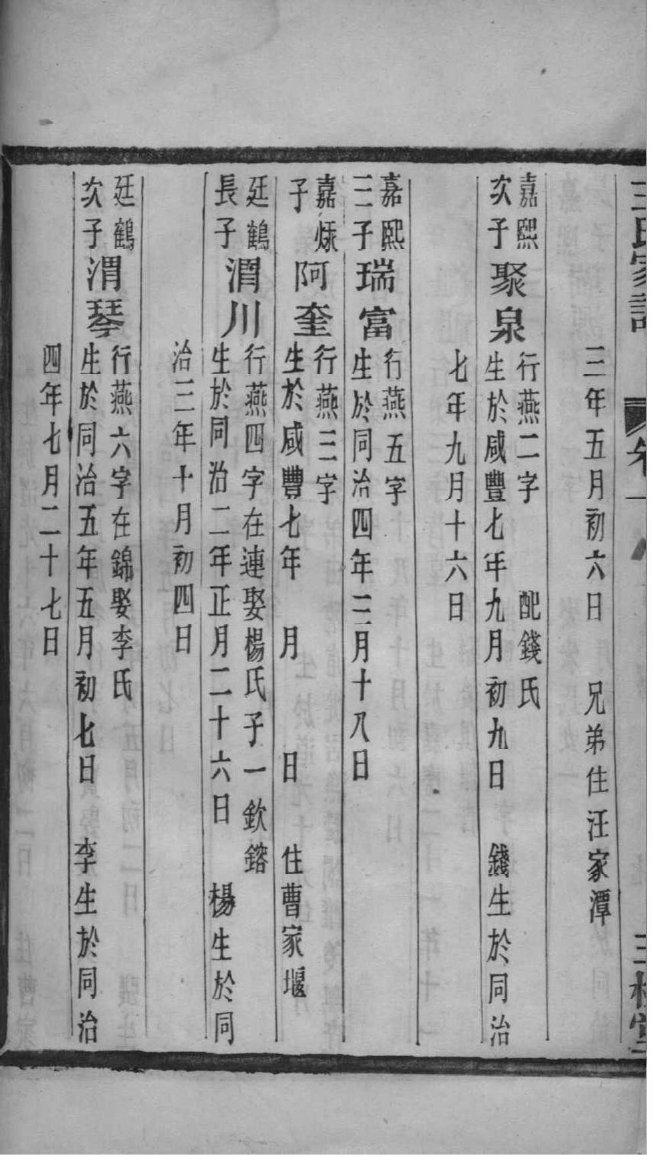 王氏家譜 卷一 三槐堂
三年五月初六日 兄弟住汪家潭
嘉熙
次子
聚泉
行燕二字 配錢氏
生於咸豐七年九月初九日 錢生於同治
七年九月十六日
嘉熙
三子
瑞富
行燕五字
生於同治四年三月十八日
嘉㷂
子
阿奎
行燕三字
生於咸豐七年 月 日 住曹家堰
廷鶴
長子
渭川
行燕四字在連娶楊氏子一欽鎔
生於同治二年正月二十六日 楊生於同
治三年十月初四日
廷鶴
次子
渭琴
行燕六字在錦娶李氏
生於同治五年五月初七日 李生於同治
四年七月二十七日